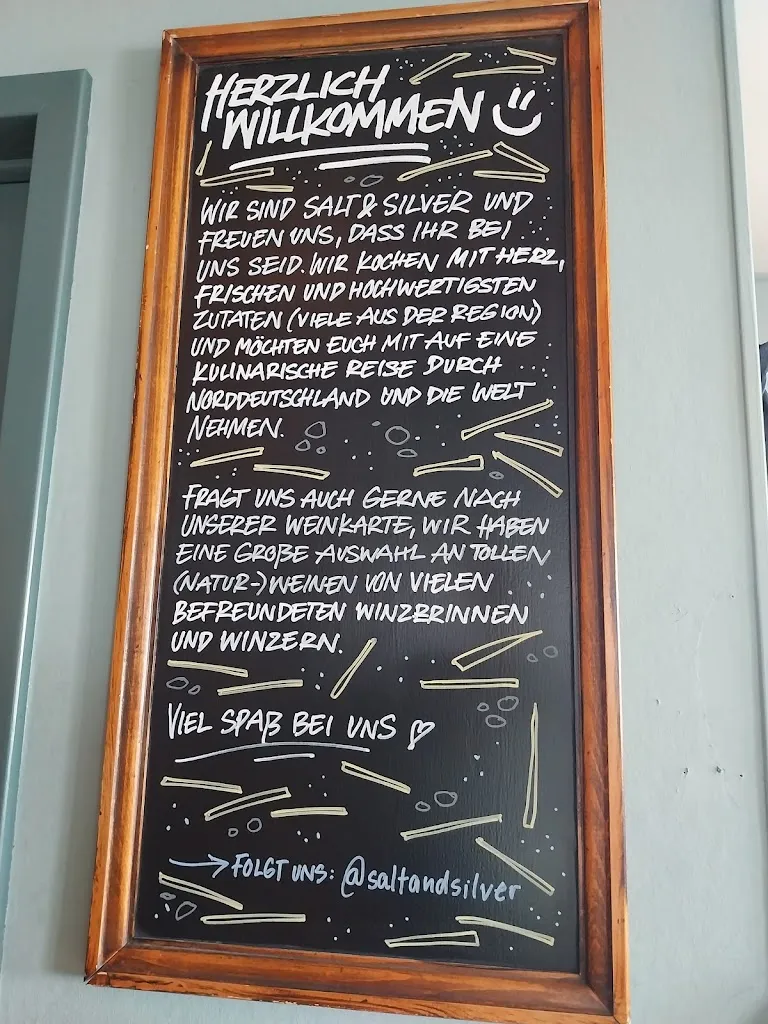 HERZLICH
WILLKOMMEN
WIR SIND SALT & SILVER UND
FREUEN UNS, DASS IHR BEI
UNS SEID. WIR KOCHEN MIT HERZ,
FRISCHEN UND HOCHWERTIGSTEN
ZUTATEN (VIELE AUS DER REGION)
UND MÖCHTEN EUCH MIT AUF EINE
KULINARISCHE REISE DURCH
NORDDEUTSCHLAND UND DIE WELT
NEHMEN.
FRAGT UNS AUCH GERNE NACH
UNSERER WEINKARTE, WIR HABEN
EINE GROßE AUSWAHL AN TOLLEN
(NATUR-) WEINEN VON VIELEN
BEFREUNDETEN WINZERINNEN
UND WINZERN.
VIEL SPAß BEI UNS
FOLGT UNS: @saltandsilver